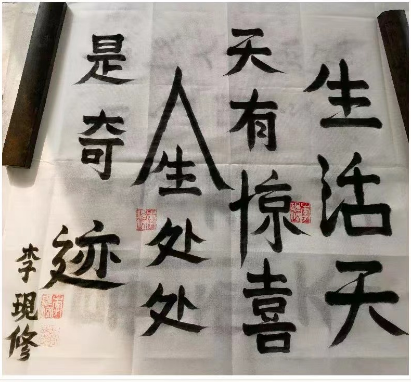 生活天
天有惊喜
人生处处
是奇迹
李现修